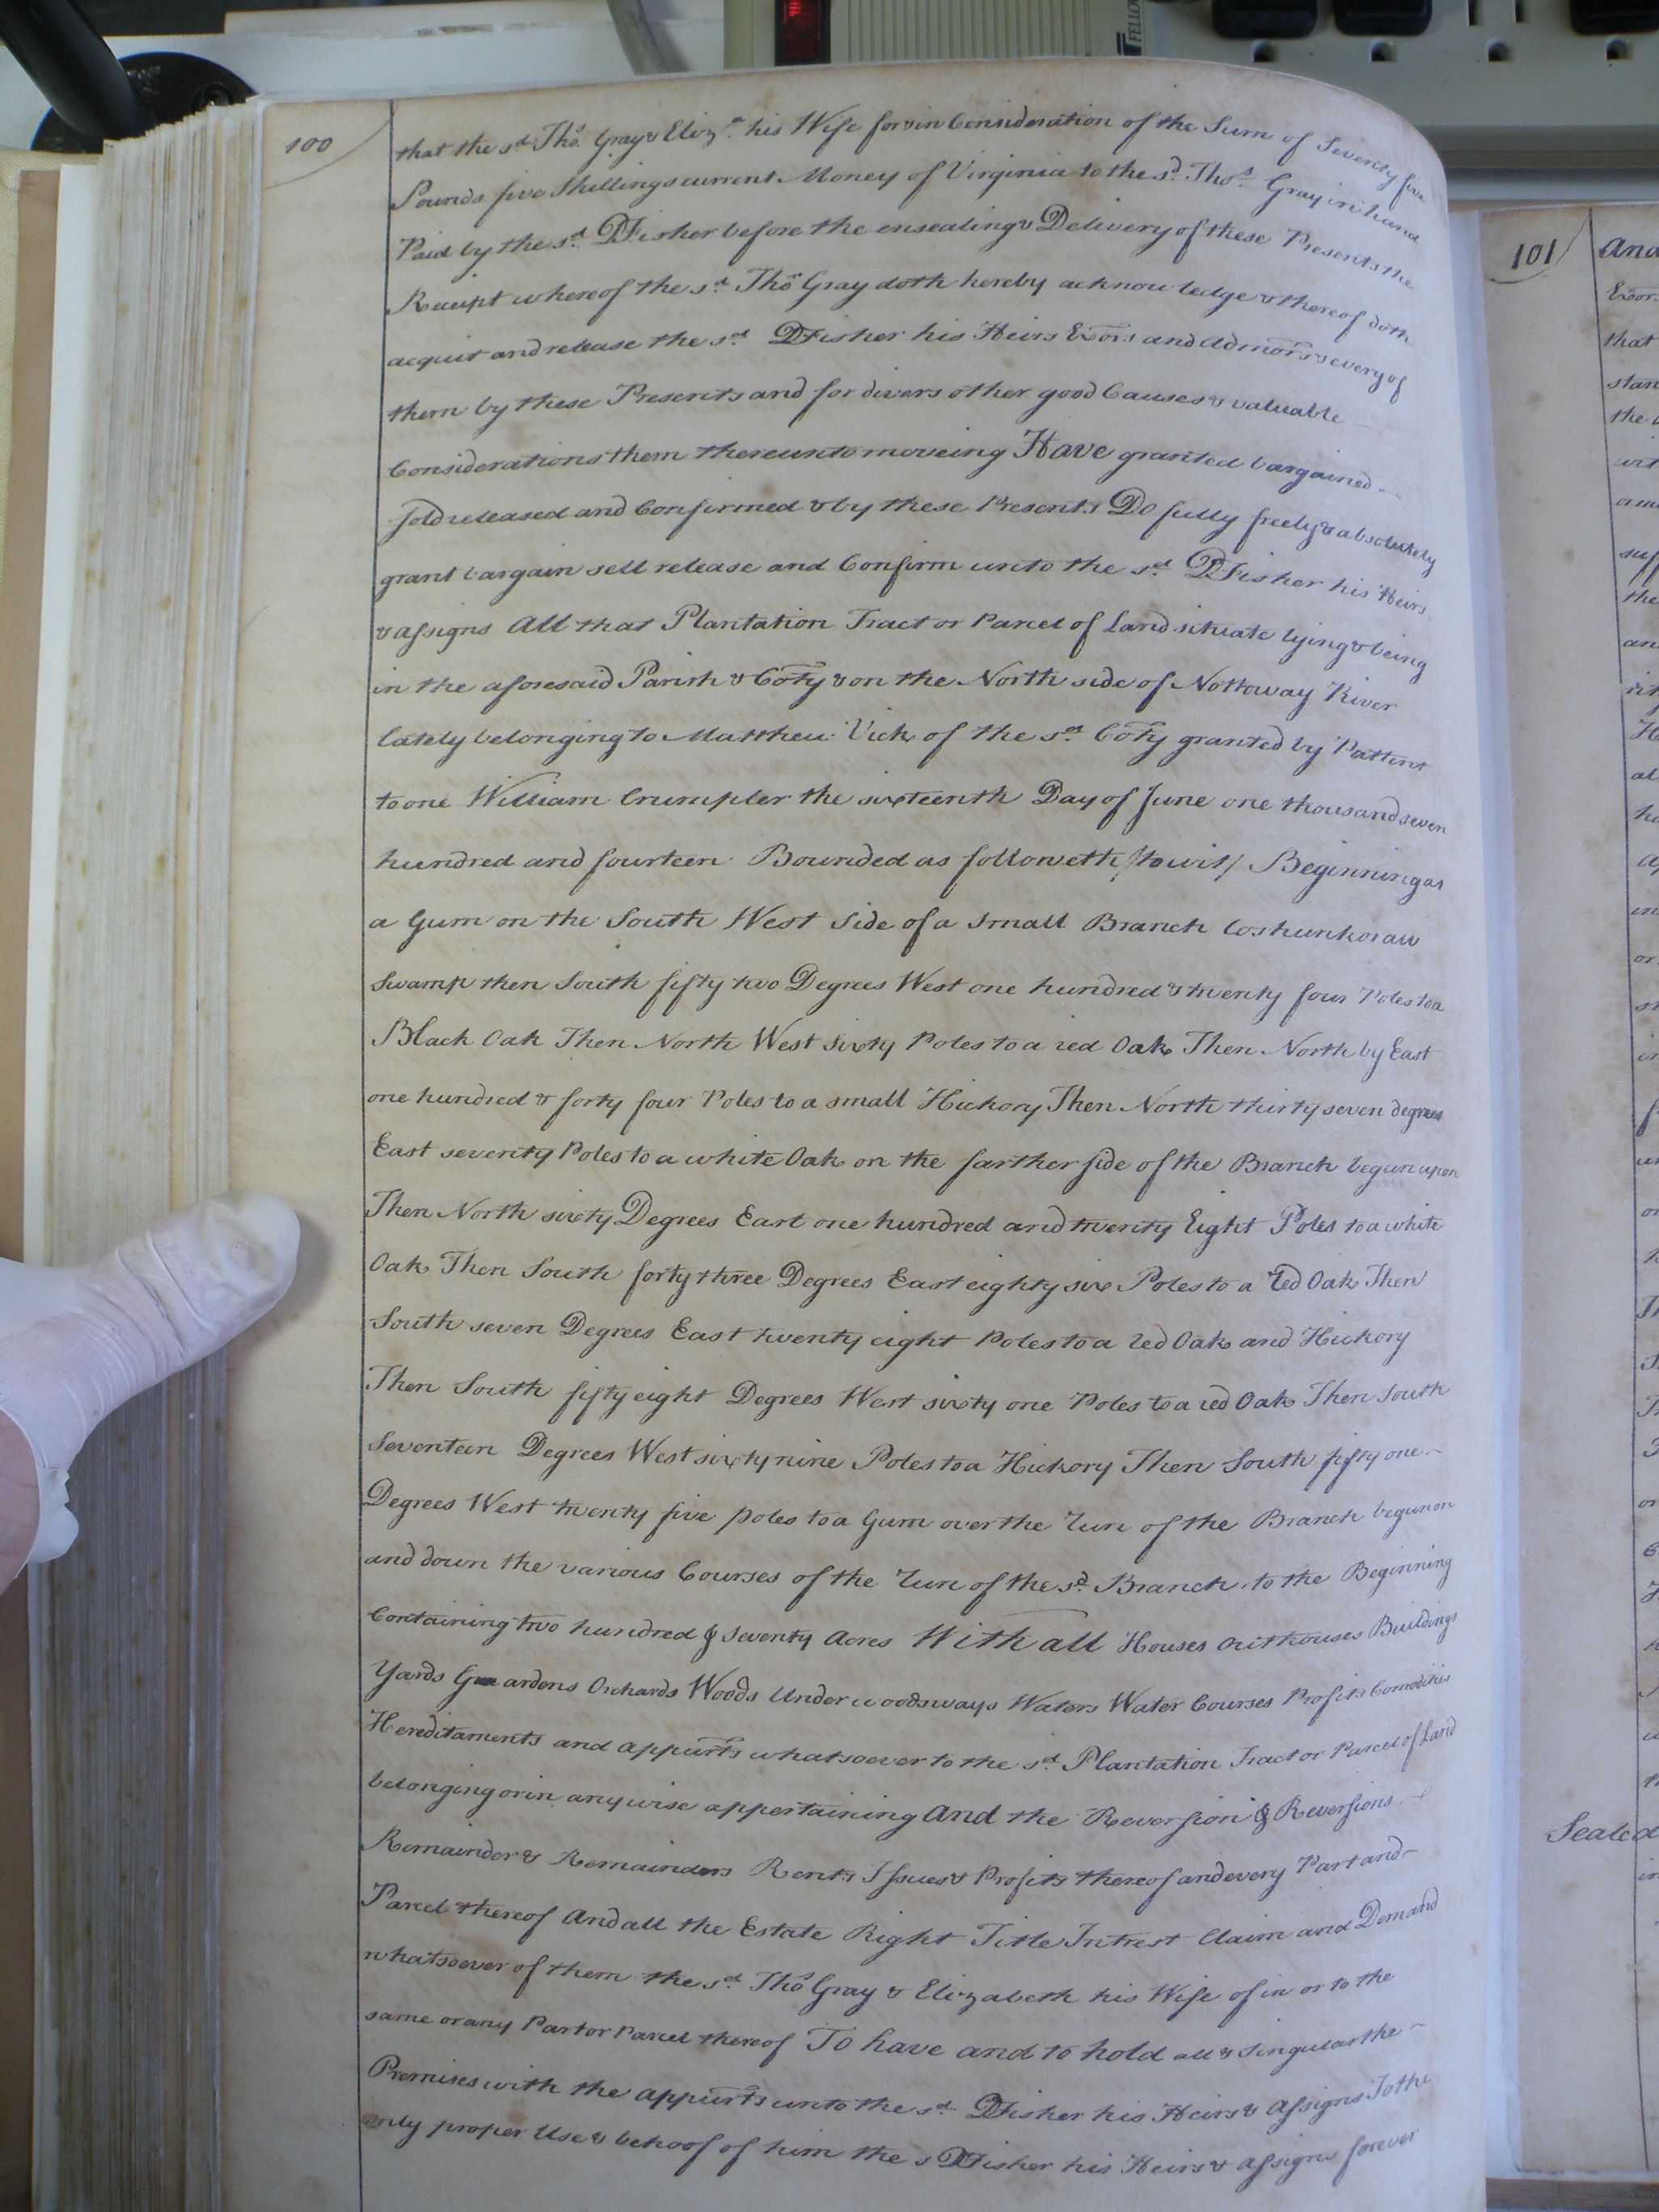 FELLO
100
that the sd. Thos. Gray & Eliza. his Wife for & in Consideration of the Sum of Seventy five
Pounds five Shillings current Money of Virginia to the sd. Thos. Gray in hand
Paid by the sd. D Fisher before the ensealing & Delivery of these Presents the
Receipt whereof the sd. Thos Gray doth hereby acknowledge & thereof doth
acquit and release the sd. D Fisher his Heirs Exors and Admors & every of
them by these Presents and for divers other good Causes & valuable
Considerations them thereunto moveing Have granted bargained
Sold released and Confirmed & by these Presents Do fully freely & absolutely
grant bargain sell release and Confirm unto the sd. D Fisher his Heirs
& assigns All that Plantation Tract or Parcel of Land situate lying & being
in the aforesaid Parish & Coty & on the North side of Nottoway River
lately belonging to Matthew Vick of the sd. Coty granted by Pattent
to one William Crumpler the sixteenth Day of June one thousand seven
hundred and fourteen Bounded as followeth /to wit/ Beginning at
a Gum on the South West Side of a Small Branch Coshunkoraw
Swamp then South fifty two Degrees West one hundred & twenty four Poles to a
Black Oak Then North West Sixty Poles to a red Oak Then North by East
one hundred & forty four Poles to a small Hickory Then North thirty seven degrees
East seventy Poles to a white Oak on the farther side of the Branch begun upon
Then North sixty Degrees East one hundred and twenty Eight Poles to a white
Oak Then South forty three Degrees East eighty six Poles to a red Oak Then
South seven Degrees East twenty eight Poles to a red Oak and Hickory
Then South fifty eight Degrees West sixty one Poles to a red Oak Then South
Seventeen Degrees West sixty nine Poles to a Hickory Then South fifty one
Degrees West twenty five poles to a Gum over the run of the Branch begun on
and down the various Courses of the run of the sd. Branch to the Beginning
Containing two hundred & Seventy Acres With all Houses outhouses Buildings
Yards Gardens Orchards Woods Underwoods ways Waters Water Courses Profits Comodities
Hereditaments and appurts whatsoever to the sd. Plantation Tract or Parcel of Land
belonging or in any wise appertaining And the Reversion & Reversions
Remainder & Remainders Rents Issues & Profits thereof and every Part and
Parcel thereof And all the Estate Right Title Intrest Claim and Demand
whatsoever of them the sd. Thos Gray & Elizabeth his Wife of in or to the
same or any Part or Parcel thereof To have and to hold all & Singular the
Premises with the appurts unto the sd. D Fisher his Heirs & Assigns To the
only proper Use & behoof of him the s D Fisher his Heirs & Assigns forever
101
And
Exor
that
the
Sealed